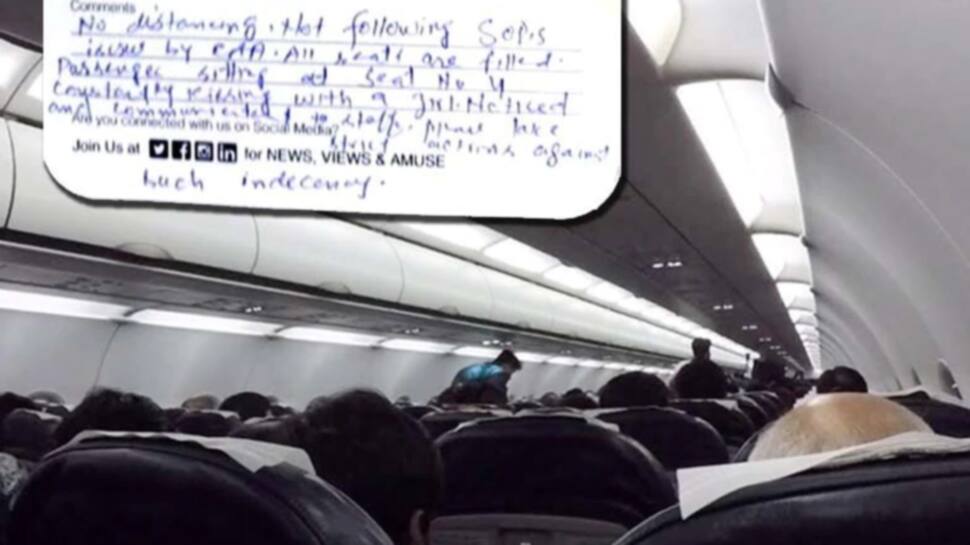 Comments
No distancing. Not following Sop.s
issued by CAA. All seats are filled.
Passenger sitting at seat No 4
Constantly Kissing with a girl. Noticed
and communicated to staff. please take
Are you connected with us on Social Media?
strict actions against
Join Us at for NEWS, VIEWS & AMUSE
such indecency.